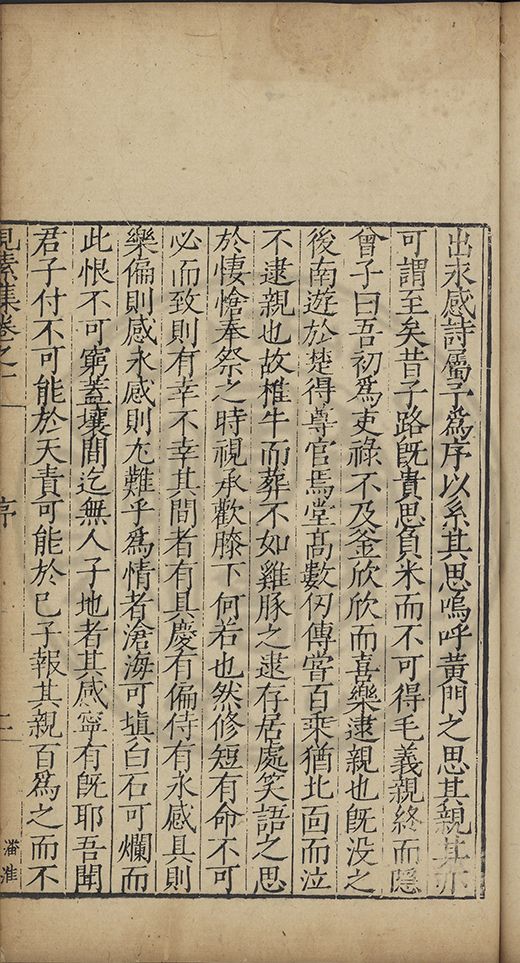 出永感詩屬予爲序以系其思嗚呼黃門之思其親其亦
可謂至矣昔子路旣貴思負米而不可得毛義親終而隱
曾子曰吾初爲吏祿不及釜欣欣而喜樂逮親也旣没之
後南遊於楚得尊官焉堂髙數仞傳嘗百乘猶北面而泣
不逮親也故椎牛而葬不如雞豚之逮存居處笑語之思
於悽愴奉祭之時視承歡膝下何若也然修短有命不可
必而致則有幸不幸其間者有具慶有偏侍有永感具則
樂偏則感永感則尤難乎爲情者滄海可塡白石可爛而
此恨不可窮蓋壤間迄無人子地者其感寧有旣耶吾聞
君子付不可能於天責可能於已子報其親百爲之而不
見素集卷之一 序 二 潘淮